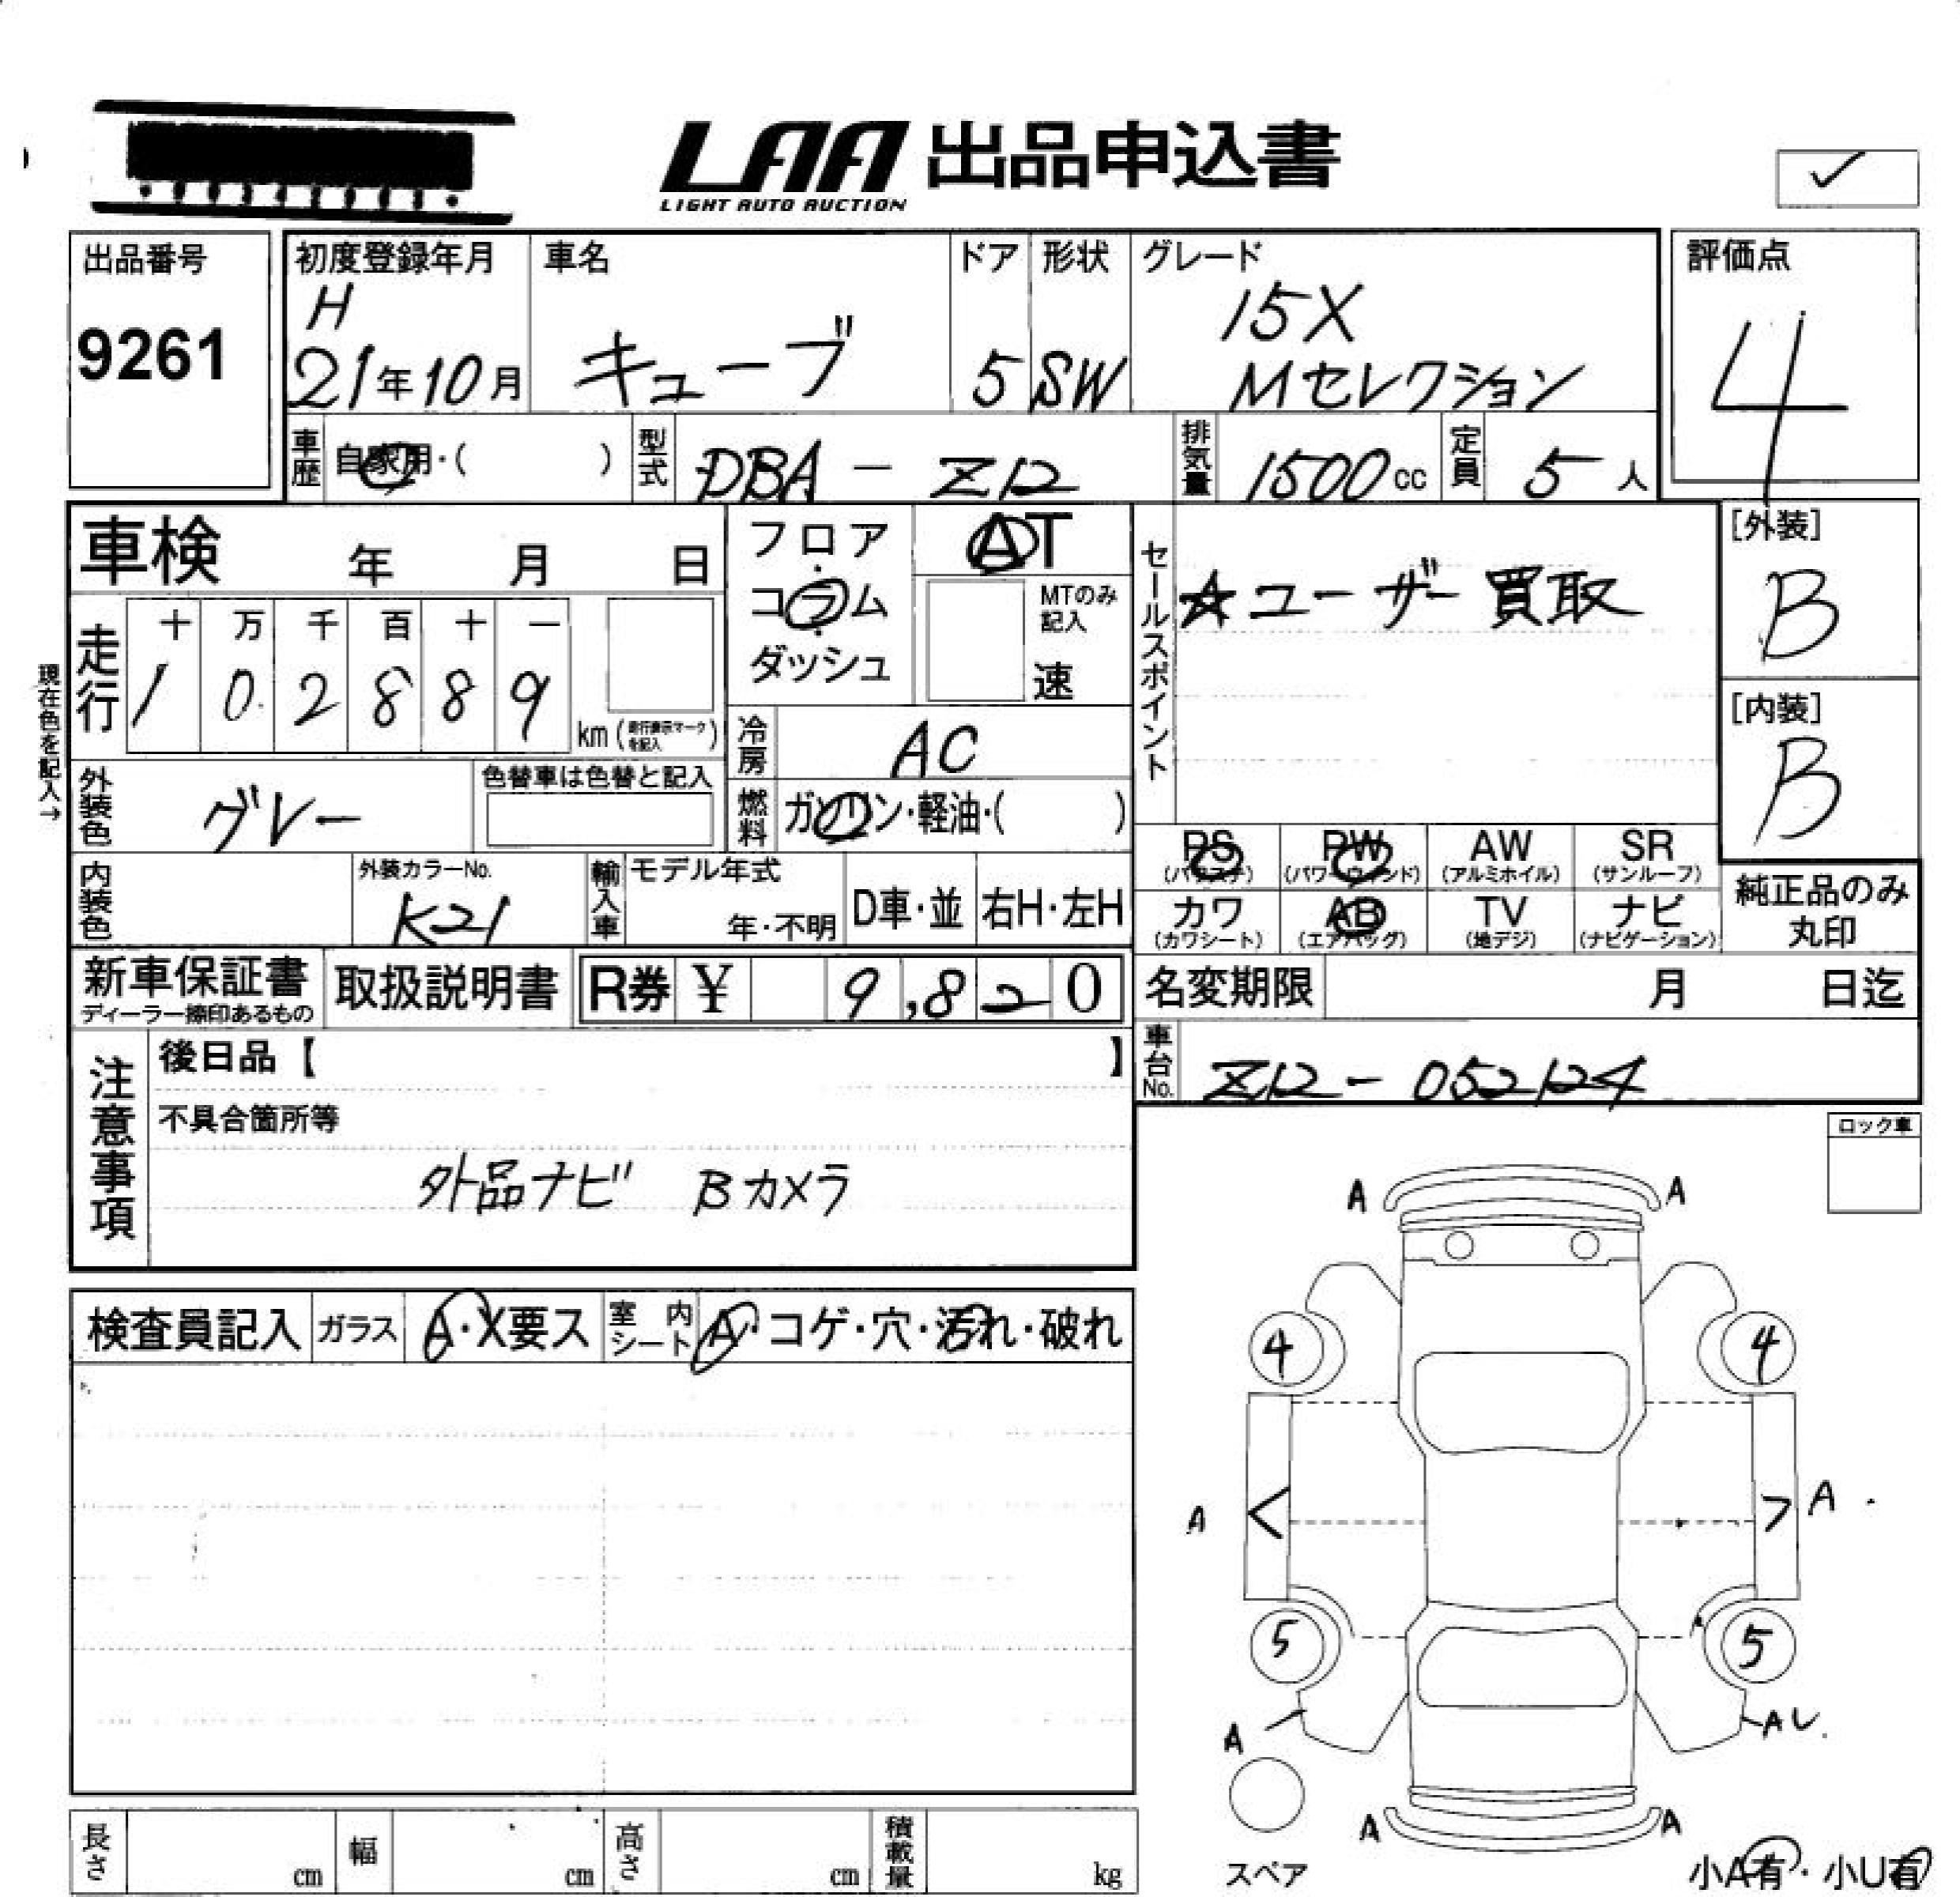 LAA 出品申込書
LIGHT AUTO AUCTION
✓
出品番号
9261
初度登録年月
H
21年10月
車名
キューブ
ドア
5
形状
SW
グレード
15X
Mセレクション
評価点
4
車歴
自家用・( )
型式
DBA - Z12
排気量
1500cc
定員
5人
車検 年 月 日
フロア
コラム
ダッシュ
AT
MTのみ記入
速
セールスポイント
☆ユーザー買取
[外装]
B
[内装]
B
現在色を記入→
走行
十 万 千 百 十 一
1 0 2 8 8 9
km (走行表示マークを記入)
冷房
AC
外装色
グレー
色替車は色替と記入
燃料
ガソリン・軽油・( )
PS PW AW SR
(パワステ) (パワーウィンド) (アルミホイル) (サンルーフ)
カワ AB TV ナビ
(カワシート) (エアバッグ) (地デジ) (ナビゲーション)
純正品のみ
丸印
内装色
外装カラーNo.
K21
輸入車
モデル年式
年・不明
D車・並
右H・左H
新車保証書
ディーラー捺印あるもの
取扱説明書
R券 ¥ 9,820
名変期限 月 日迄
車台No.
Z12 - 052124
注意事項
後日品【 】
不具合箇所等
外品ナビ Bカメラ
ロック車
検査員記入
ガラス
A・X要ス
室内シート
A・コゲ・穴・汚れ・破れ
A A
4 4
A < > A
5 5
A AU
A A
スペア
小A有・小U有
長さ cm
幅 cm
高さ cm
積載量 kg